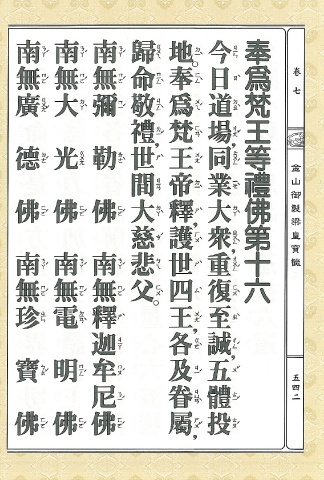 卷七
金山御製梁皇寶懺
五四二
奉為梵王等禮佛第十六
今日道場同業大眾重復至誠五體投
地。奉為梵王帝釋護世四王各及眷屬，
歸命敬禮，世間大慈悲父。
南無彌勒佛 南無釋迦牟尼佛
南無大光佛 南無電明佛
南無廣德佛 南無珍寶佛